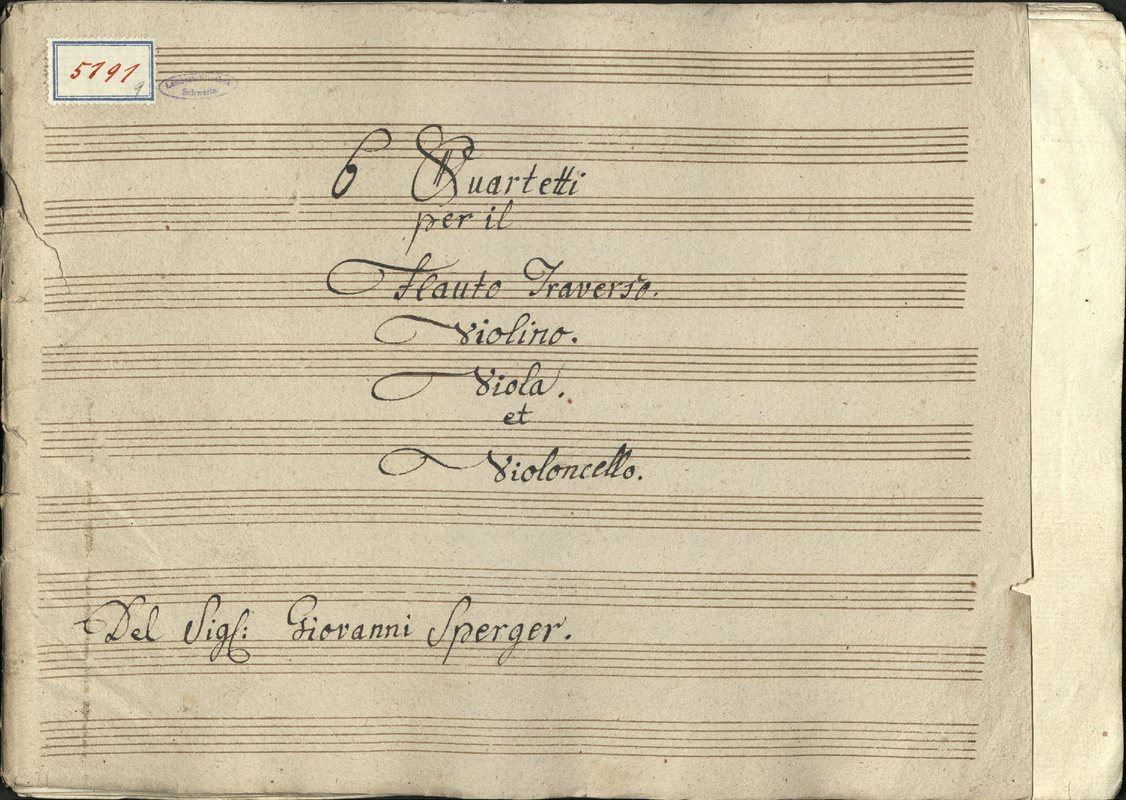 5191
9
Schwerin
6 Quartetti
per il
Flauto Traverso.
Violino.
Viola.
et
Violoncello.
Del Sigl: Giovanni Sperger.